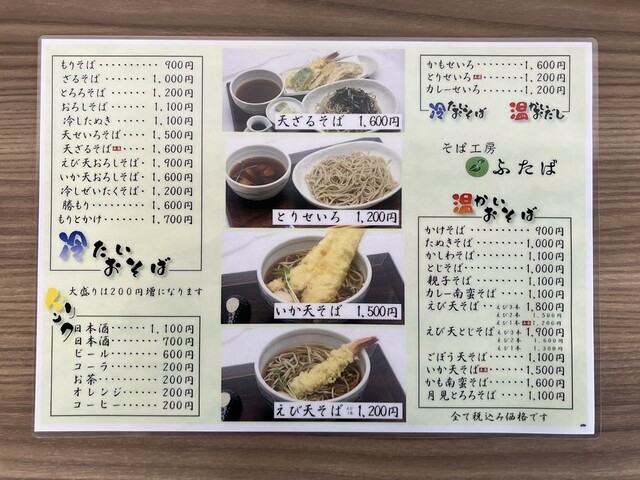 もりそば‥‥‥‥ 900円
ざるそば‥‥‥‥ 1,000円
とろろそば‥‥‥ 1,200円
おろしそば‥‥‥ 1,100円
冷したぬき‥‥‥ 1,100円
天せいろそば‥‥ 1,500円
天ざるそば‥‥ 1,600円
えび天おろしそば・ 1,900円
いか天おろしそば・ 1,600円
冷しぜいたくそば・ 1,200円
勝もり‥‥‥‥‥ 1,600円
もりとかけ‥‥‥ 1,700円
冷たいおそば
大盛りは200円増になります
ドリンク
日本酒‥‥‥ 1,100円
日本酒‥‥‥ 700円
ビール‥‥‥ 600円
コーラ‥‥‥ 200円
お茶‥‥‥‥ 200円
オレンジ‥‥ 200円
コーヒー‥‥ 200円
天ざるそば 1,600円
とりせいろ 1,200円
いか天そば 1,500円
えび天そば 1,200円
かもせいろ‥‥‥ 1,600円
とりせいろ‥‥ 1,200円
カレーせいろ‥‥ 1,200円
冷たいおそば 温かいおだし
そば工房
ふたば
温かいおそば
かけそば‥‥‥‥ 900円
たぬきそば‥‥‥ 1,000円
かしわそば‥‥‥ 1,100円
とじそば‥‥‥‥ 1,000円
親子そば‥‥‥‥ 1,100円
カレー南蛮そば‥ 1,100円
えび天そば‥ えび3本 1,800円
えび2本 1,500円
えび1本 1,200円
えび天とじそば えび3本 1,900円
えび2本 1,600円
えび1本 1,300円
ごぼう天そば‥‥ 1,100円
いか天そば‥‥ 1,500円
かも南蛮そば‥‥ 1,600円
月見とろろそば‥ 1,100円
全て税込み価格です